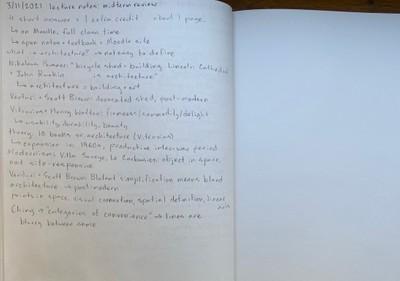 3/11/2021 lecture notes: midterm review
16 short answer + 1 extra credit about 1 page
↳ on Moodle, full class time
↳ open notes + textbook + Moodle site
what is architecture? → not easy to define
Nikolaus Pevsner: "bicycle shed = building, Lincoln Cathedral
+ John Ruskin is architecture"
↳ architecture = building + art
Venturi + Scott Brown: decorated shed, post-modern
Vitruvius + Henry Wotton: firmness/commodity/delight
↳ usability, durability, beauty
theory, 10 books on architecture (Vitruvius)
↳ expansion in 1960s, productive inter-war period
Modernism: Villa Savoye, Le Corbusier: object in space,
not site-responsive
Venturi + Scott Brown: Blatant simplification means bland
architecture → post-modern
points in space, visual connection, spatial definition, linear
axis
Ching → "categories of convenience" → lines are
blurry between some